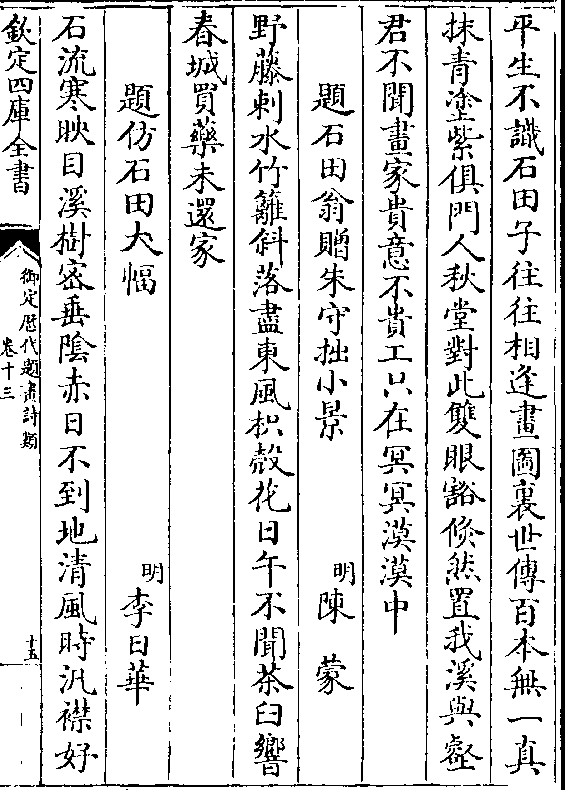 平生不識石田子往往相逢畫圖裏世傳百本無一真
抹青塗紫俱門人秋堂對此雙眼豁倐然置我溪與壑
君不聞畫家貴意不貴工只在冥冥漠漠中
題石田翁贈朱守拙小景　明陳蒙
野藤刺水竹籬斜落盡東風枳殼花日午不聞茶臼響
春城買藥未還家
題仿石田大幅　明李日華
石流寒映目溪樹宻垂陰赤日不到地清風時汎襟好
欽定四庫全書
御定歴代題畫詩類
卷十三
十五